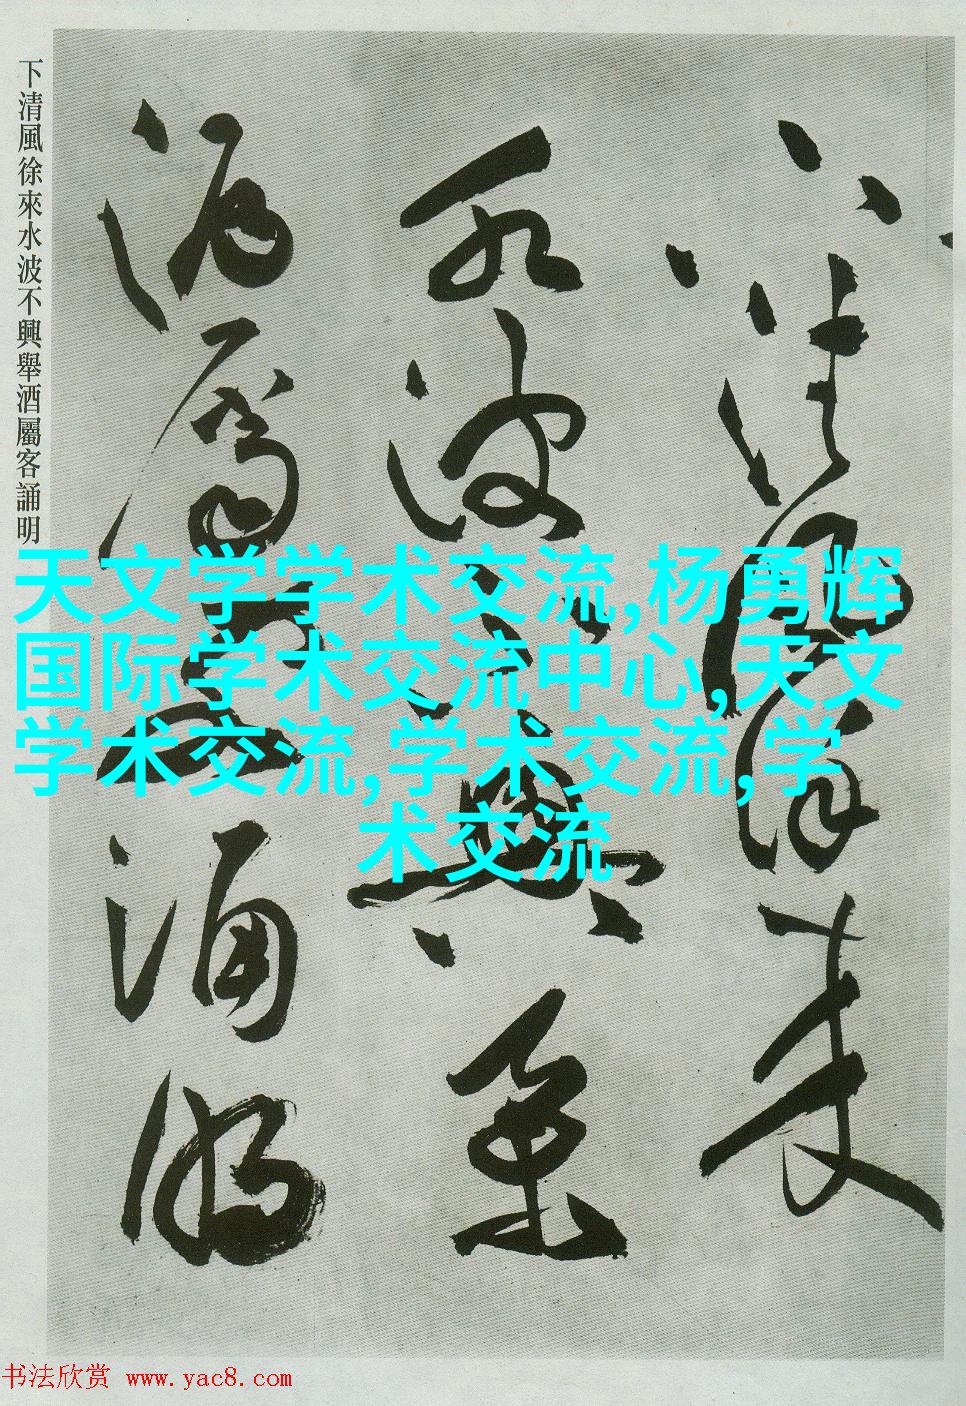 下清風徐來水波不興舉酒屬客誦明
下清風徐來
水波不興舉
酒屬客誦明
天文学学术交流,杨勇辉
国际学术交流中心,天文
学术交流,学术交流,学
术交流
书法欣赏 www.yac8.com